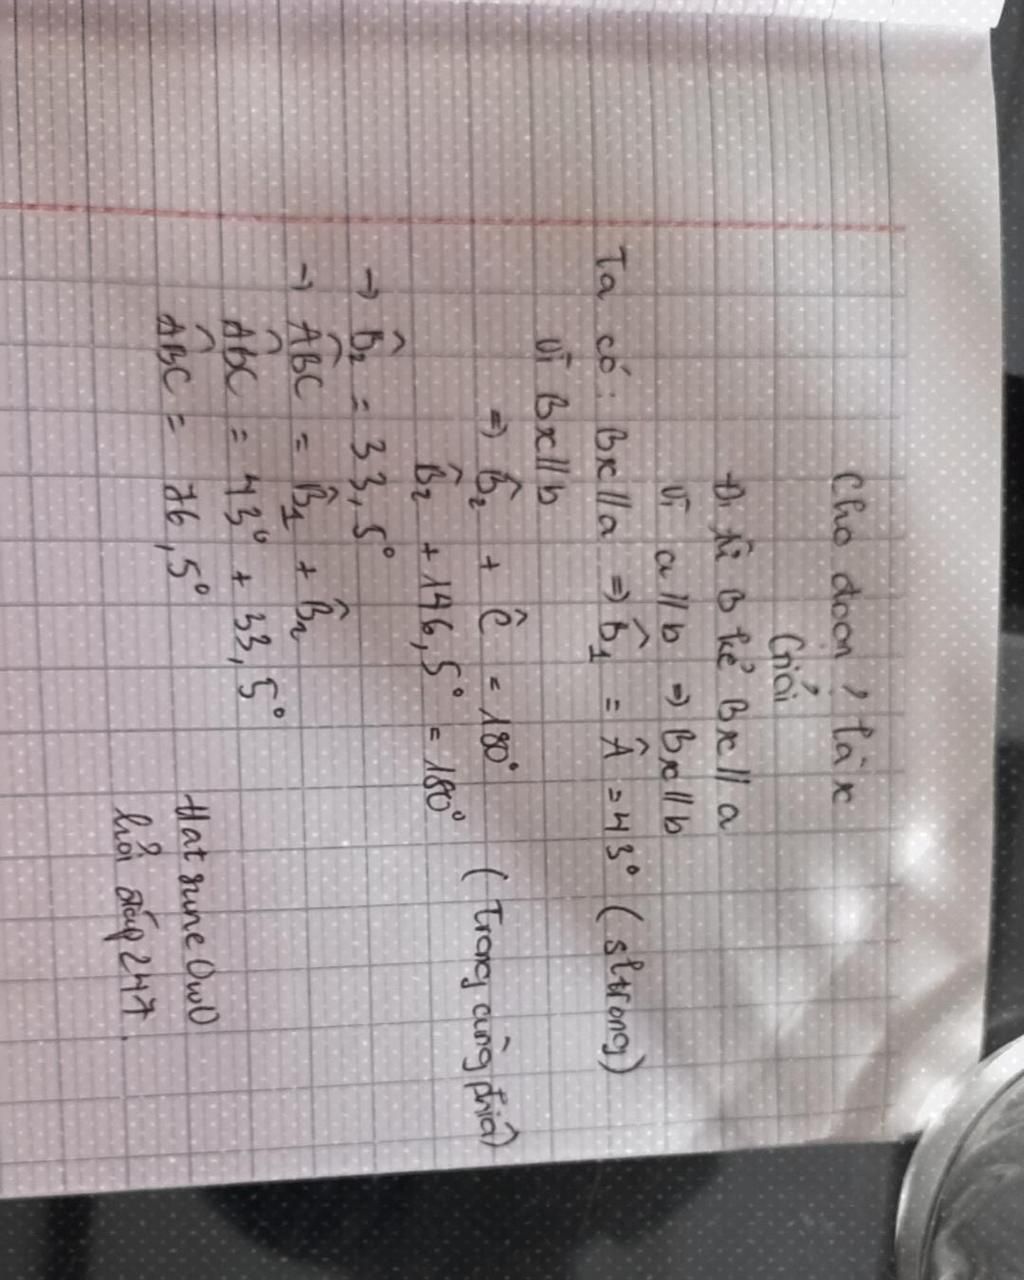 Cho đoạn, là x
Giải
Đi từ B kẻ Bx // a
Vì a // b => Bx // b
Ta có: Bx // a => B̂1 = Â = 43° (sltrong)
Vì Bx // b
=> B̂2 + Ĉ = 180° (Trong cùng phía)
B̂2 + 146,5° = 180°
→ B̂2 = 33,5°
→ ABĈ = B̂1 + B̂2
ABĈ = 43° + 33,5°
ABĈ = 76,5°
HatsuneOwO
hỏi đáp 247.